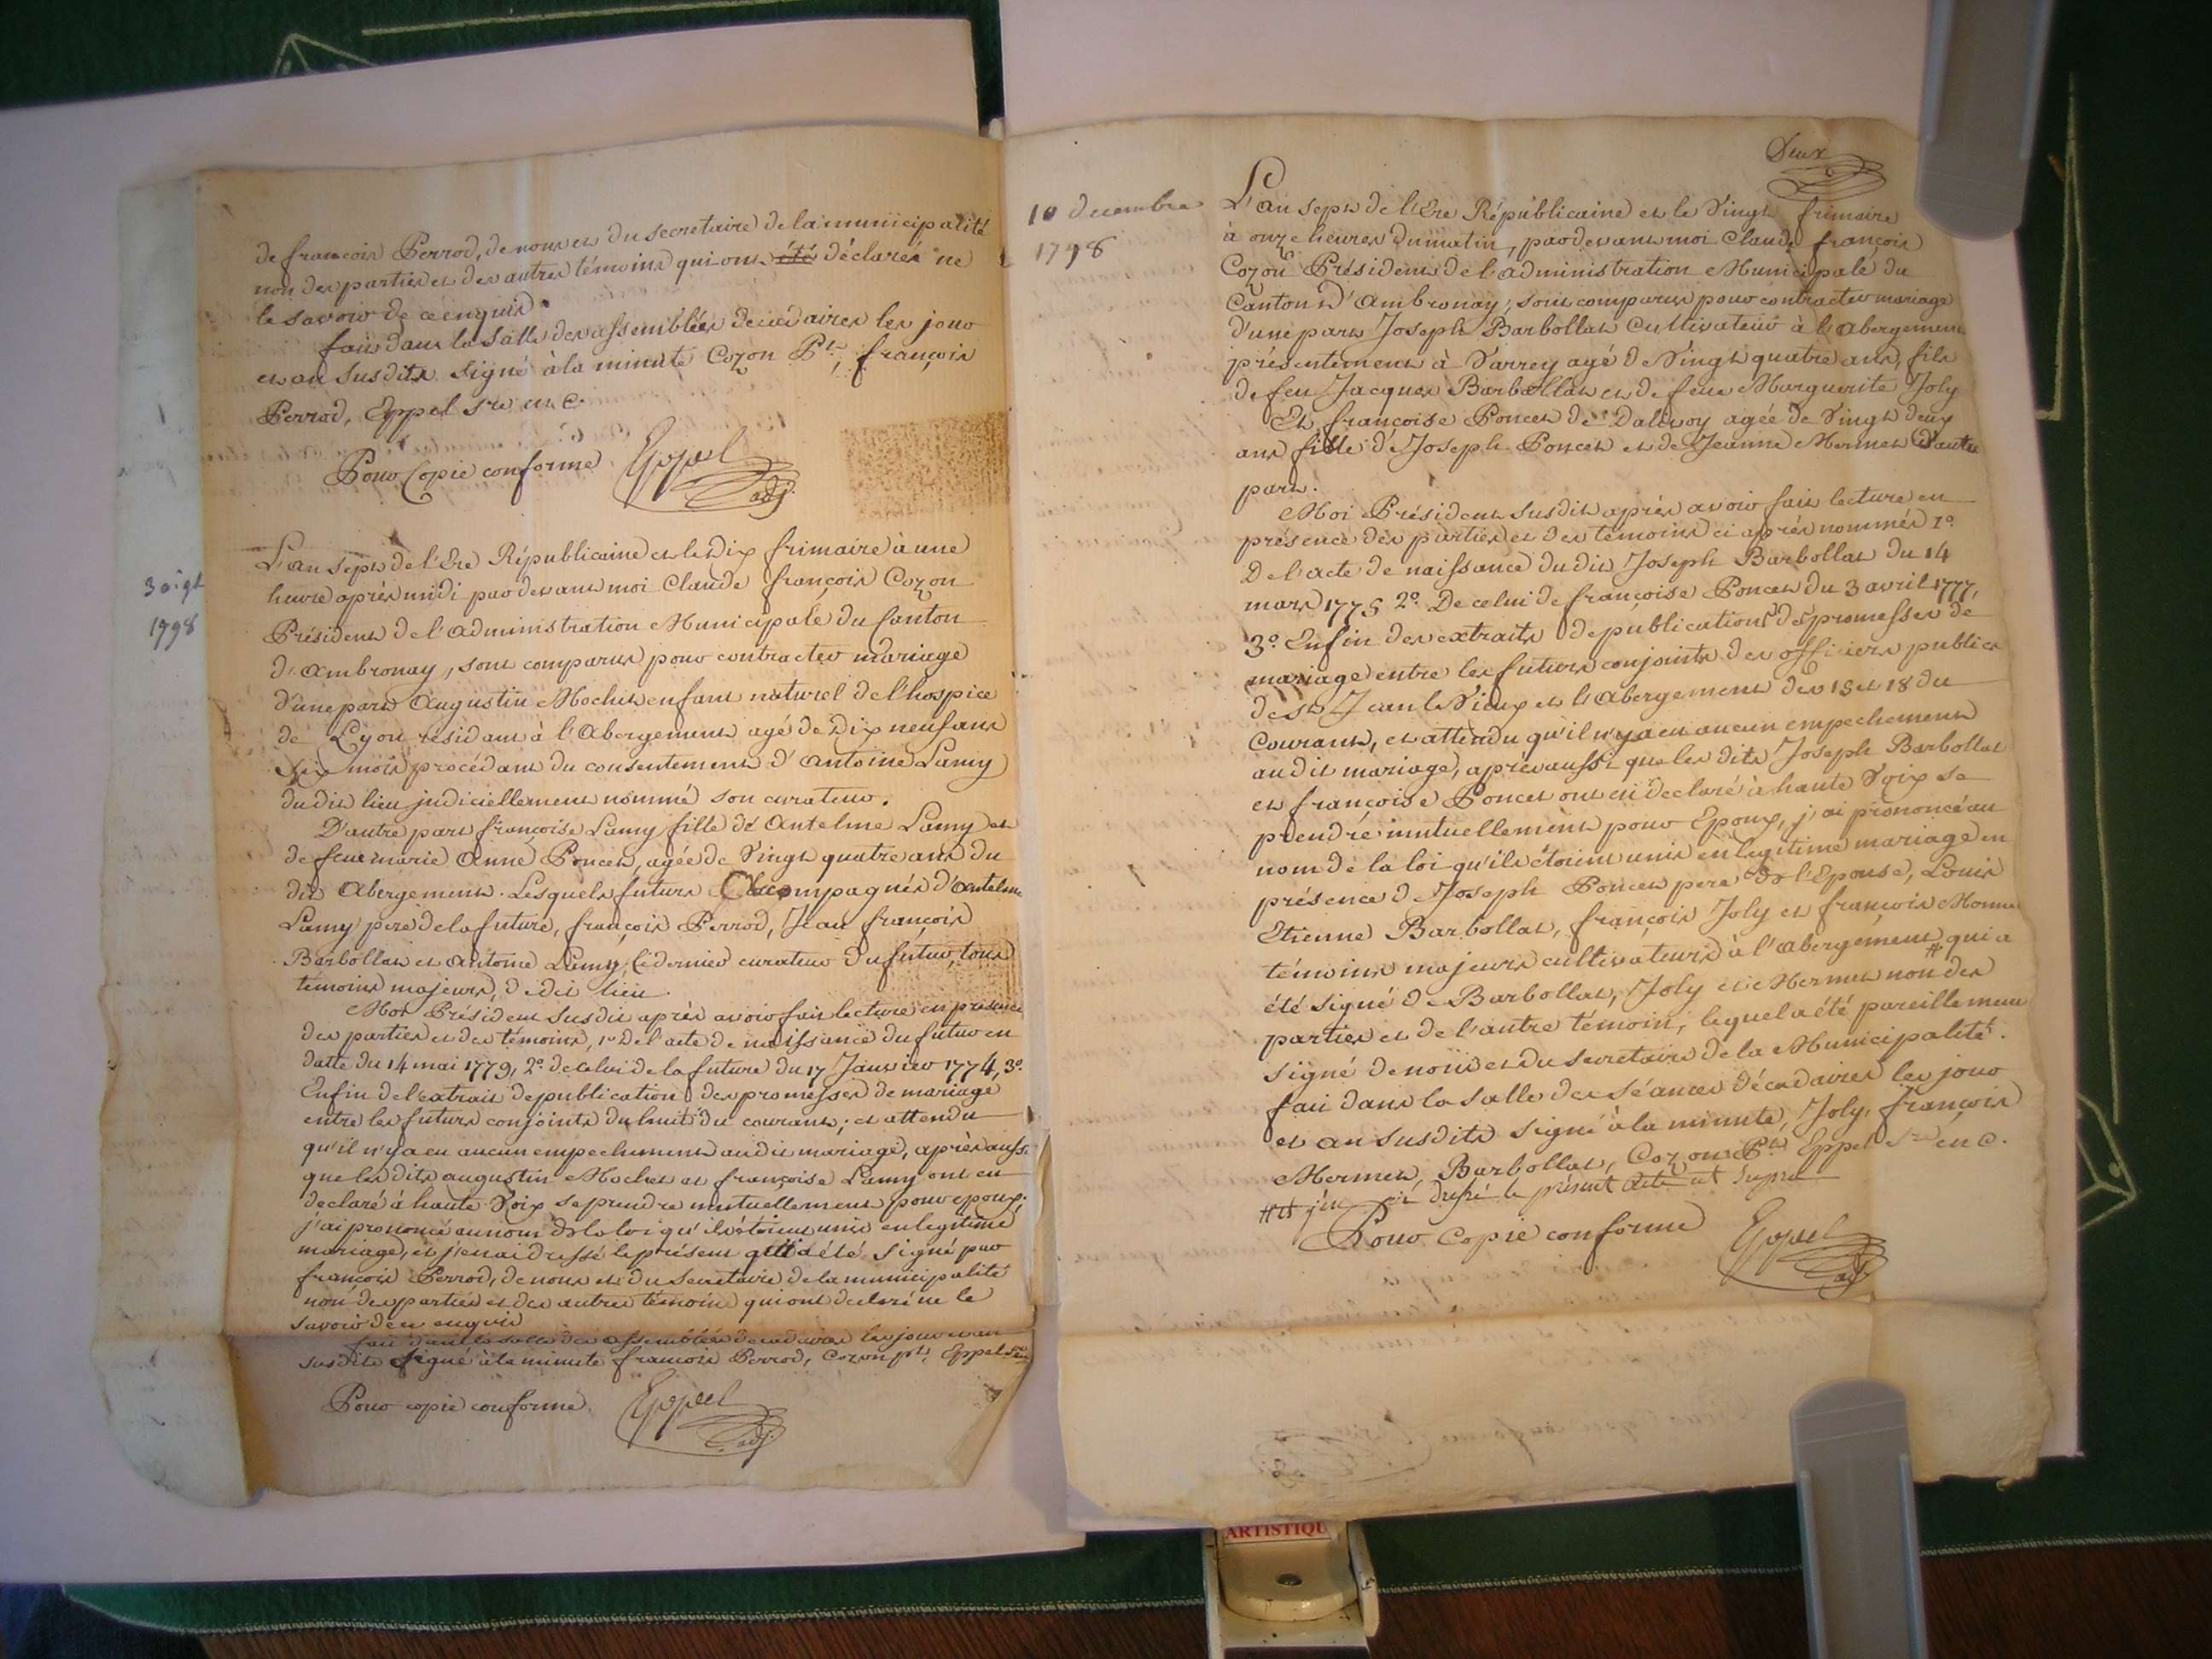 de françois Perrod, de nous et du secretaire de la municipalité
non des parties et des autres témoins qui ont été déclarés ne
le savoir de ce enquis
fait dans la salle des assemblées decadaires les jour
et an susdits signé à la minute Cozon Pt, françois
Perrod, Eppel Sre en c.
Pour Copie conforme Eppel
adj.
30 9bre
1798
L'an sept de l'Ere Républicaine et le Dix frimaire à une
heure après midi par devant moi Claude françois Cozon
Président de l'administration Municipale du Canton
d'ambronay, sont comparus pour contracter mariage
d'une part Augustin Mochet enfant naturel de l'hospice
de Lyon résidant à l'Abergement agé de Dix neuf ans
six mois procédant du consentement d'antoine Lamy
du dit lieu judiciellement nommé son curateur.
D'autre part françoise Lamy fille de Antelme Lamy et
de feue marie Anne Poncet, agée de Vingt quatre ans du
dit Abergement. Lesquels futurs Accompagnés d'antelme
Lamy pere de la future, françois Perrod, Jean françois
Barbollat et Antoine Lamy, ce dernier curateur du futur, tous
témoins majeurs, dudit lieu.
Moi Président susdit après avoir fait lecture en presence
des parties et des témoins, 1° De l'acte de naissance du futur en
datte du 14 mai 1779, 2° de celui de la future du 17 Janvier 1774, 3°
Enfin de l'extrait de publication des promesses de mariage
entre les futurs conjoints du huit du courant; et attendu
qu'il n'y a eu aucun empechement au dit mariage, après aussi
que les dits augustin Mochet et françoise Lamy ont eu
declaré à haute Voix se prendre mutuellement pour epoux,
j'ai prononcé au nom de la loi qu'ils étoient unis en legitime
mariage, et j'en ai dressé le présent qui a été signé par
françois Perrod, de nous et du Secretaire de la municipalité
non des parties et des autres témoins qui ont declaré ne le
savoir de ce enquis
fait dans la salle des assemblées decadaires les jour et an
susdits signé à la minute françois Perrod, Cozon pt, Eppel Sre
Pour copie conforme. Eppel
adj.
Deux
10 decembre
1798
L'an sept de l'Ere Républicaine et le Vingt frimaire
à onze heures du matin, par devant moi Claude françois
Cozon Président de l'administration Municipale du
Canton d'Ambronay, sont comparus pour contracter mariage
d'une part Joseph Barbollat Cultivateur à l'abergement
présentement à Varrey agé de Vingt quatre ans, fils
de feu Jacques Barbollat et de feue Marguerite Joly
Et françoise Poncet de Dalivoy agée de Vingt deux
ans fille de Joseph Poncet et de Jeanne Mermet d'autre
part.
Moi Président susdit après avoir fait lecture en
présence des parties et des témoins ci après nommés 1°
De l'acte de naissance du dit Joseph Barbollat du 14
mars 1775 2° De celui de françoise Poncet du 3 avril 1777,
3° Enfin des extraits de publications des promesses de
mariage entre les futurs conjoints des officiers publics
de St Jean le Vieux et l'abergement des 15 et 18 du
Courant, et attendu qu'il n'y a eu aucun empechement
au dit mariage, après aussi que les dits Joseph Barbollat
et françoise Poncet ont eu declaré à haute Voix se
prendre mutuellement pour Epoux, j'ai prononcé au
nom de la loi qu'ils étoient unis en legitime mariage en
présence de Joseph Poncet pere de l'Epouse, Louis
Etienne Barbollat, françois Joly et françois Mermet
témoins majeurs cultivateurs à l'abergement # qui a
été signé de Barbollat, Joly et Mermet non des
parties et de l'autre témoin, lequel a été pareillement
signé de nous et du secretaire de la Municipalité.
fait dans la salle des séances décadaires les jour
et an susdits signé à la minute, Joly, françois
Mermet, Barbollat, Cozon Pt Eppel Sre en c.
# et j'en ai dressé le présent acte
Pour Copie conforme Eppel
adj
ARTISTIQU